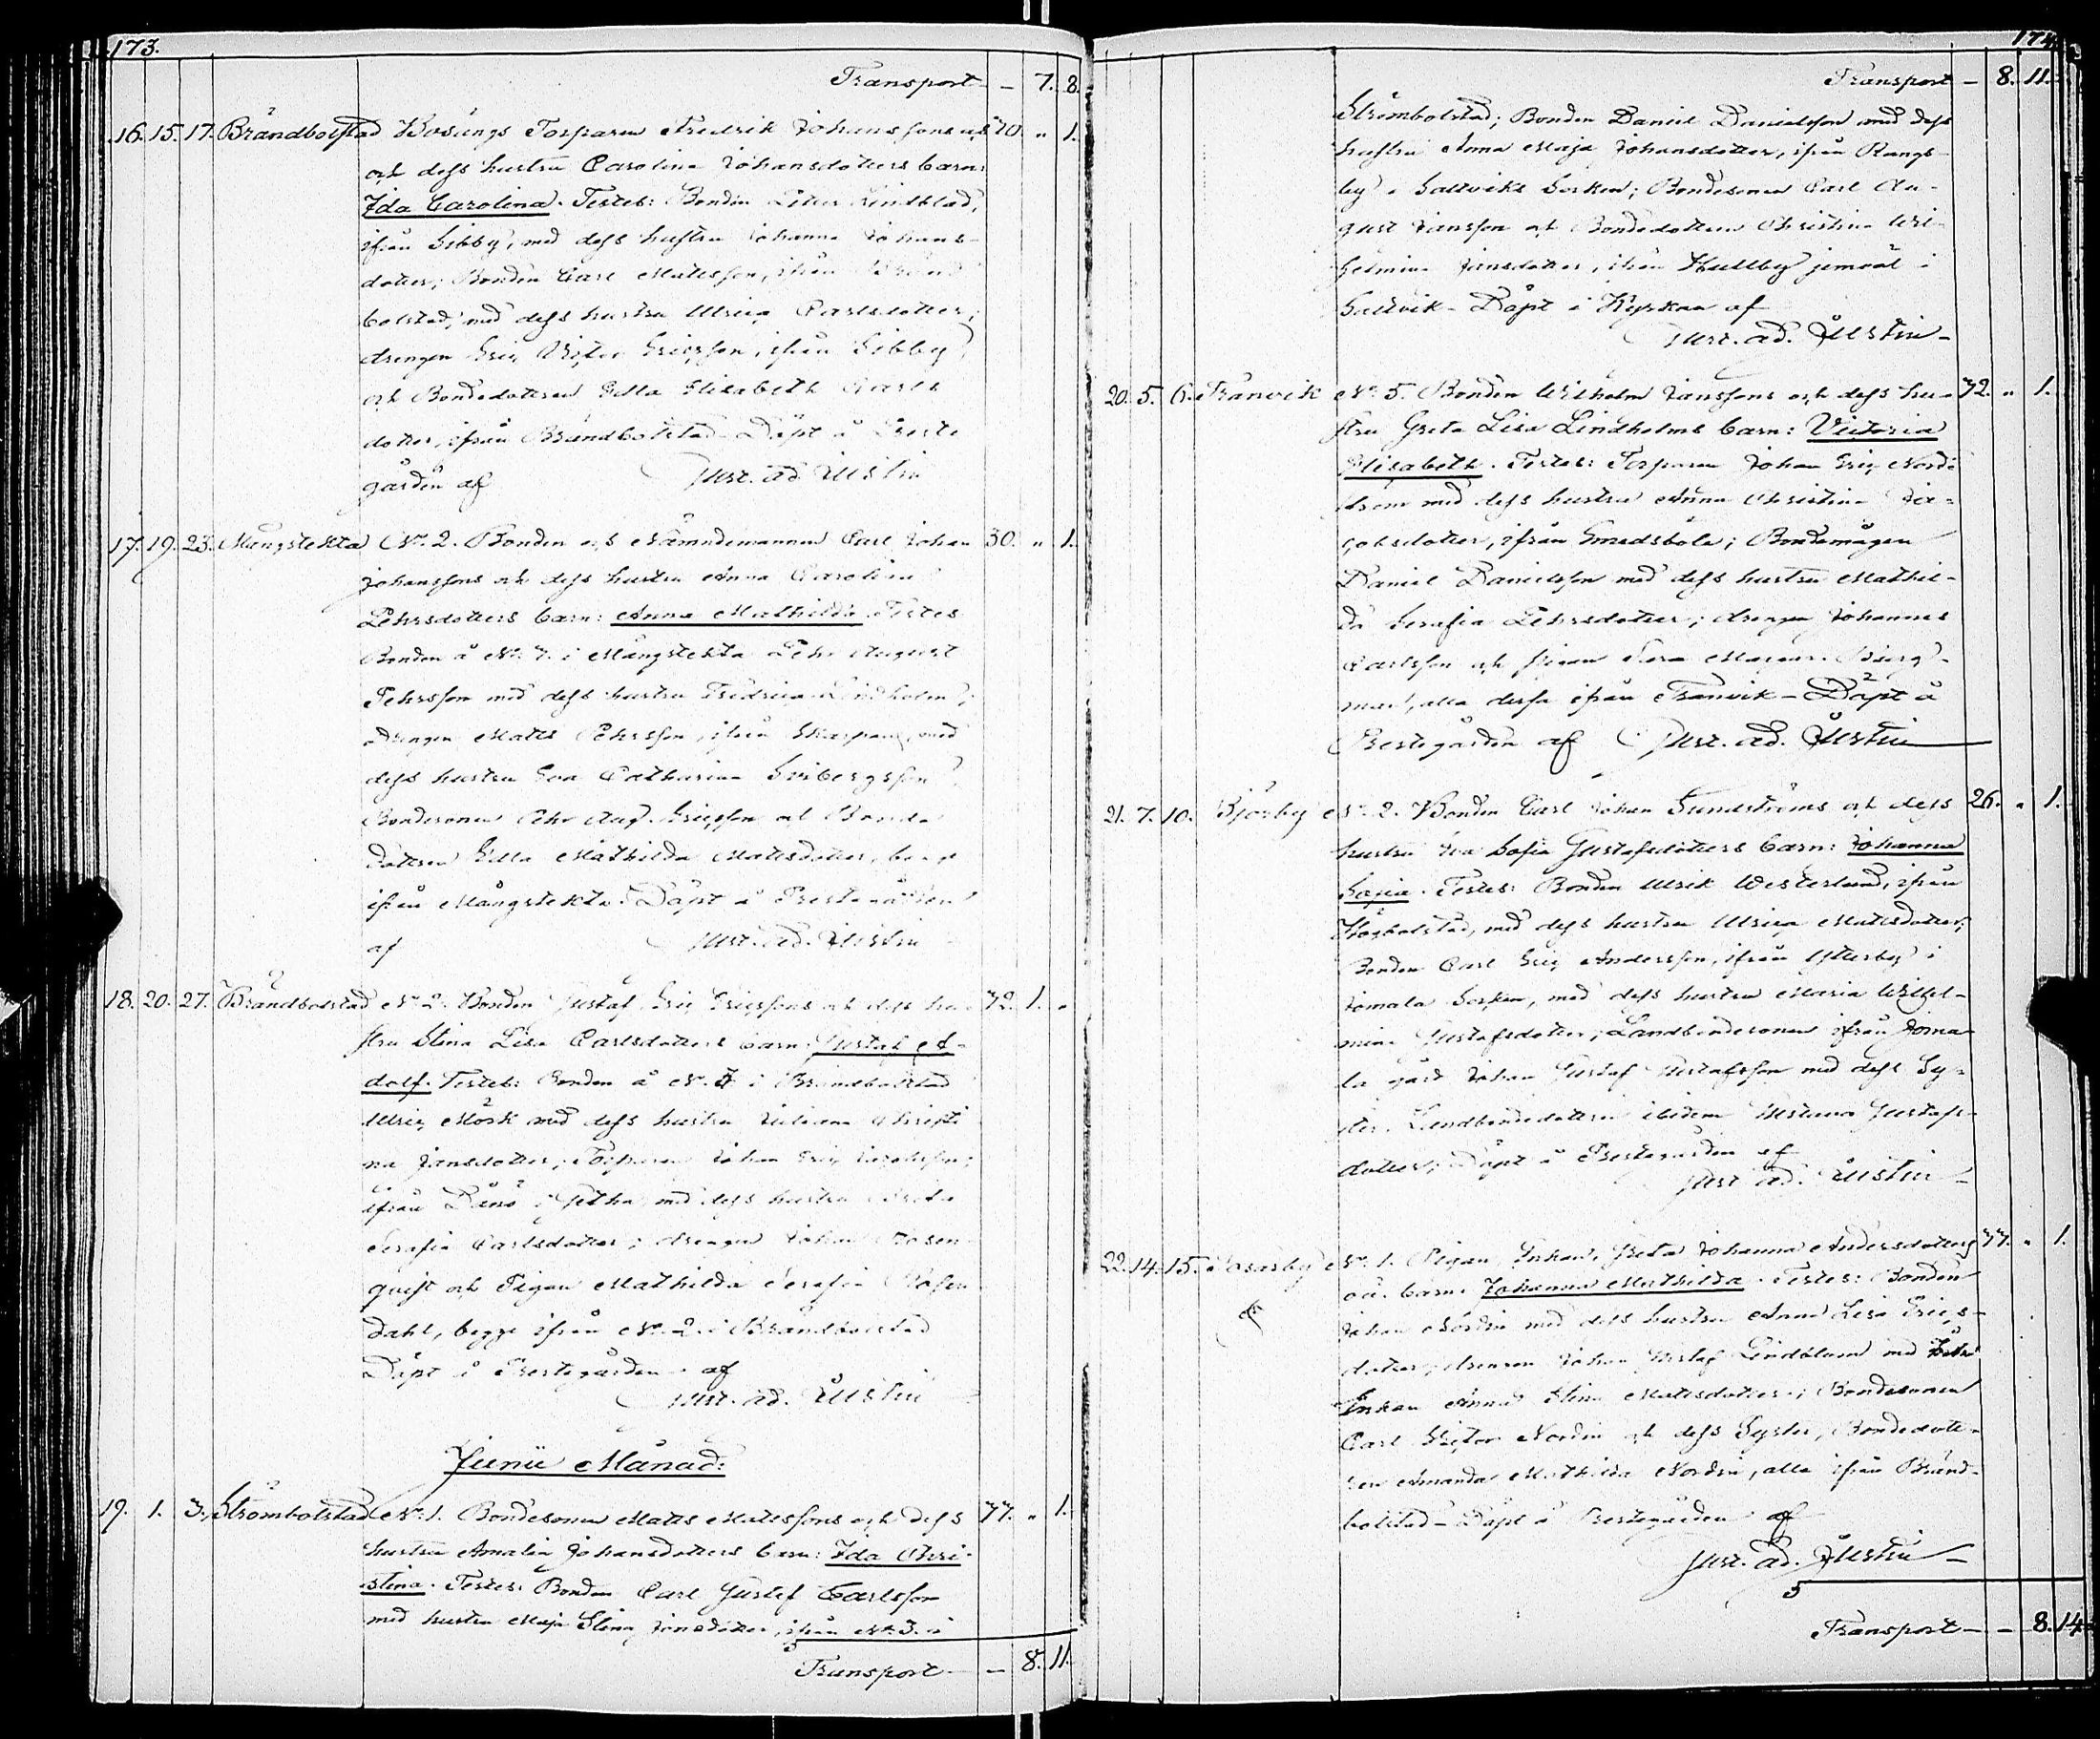 173.
Transport - 7. 8.
16. 15. 17. Brändbolstad Bosängs Torparen Fredrik Johanssons 20. " 1.
och dess hustru Carolina Johansdotters barn:
Ida Carolina. Testes: Bonden Petter Lindblad,
ifrån Sibby, med dess hustru Johanna Johans-
dotter; Bonden Carl Matsson, ifrån Bränd-
bolstad, med dess hustru Ulrica Carlsdotter;
drengen Eric Victor Ericsson, ifrån Sibby,
och Bondedottren Edla Elisabeth Carls-
dotter, ifrån Brändbolstad. Döpt å Preste-
gården af Gust. Ad. Åustin
17. 19. 23. Mångstekta No. 2. Bonden och Nämndemannen Carl Johan 30. " 1.
Johanssons och dess hustru Anna Carolina
Pehrsdotters barn: Anna Mathilda. Testes
Bonden å No. 7. i Mångstekta Pehr August
Pehrsson med dess hustru Fredrica Lindholm;
drengen Matts Pehrsson, ifrån med
dess hustru Eva Catharina
Bondesonen Pehr Aug. Ericsson och Bonde-
dottren Edla Mathilda Mattsdotter, begge
ifrån Mångstekta. Döpt å Prestegården
af Gust. Ad. Åustin
18. 20. 27. Brändbolstad No. 2. Bonden Gustaf Eric Ericssons och dess hu- 72. 1. "
stru Stina Lisa Carlsdotters barn: Gustaf A-
dolf. Testes: Bonden å No. i Brändbolstad
Ulric Mörk med dess hustru Juliana Christi-
na Jansdotter; Torparen Johan Eric
ifrån Dånö i Getha, med dess hustru Greta
Serafia Carlsdotter; drengen Johan Rosen-
quist och Pigan Mathilda Serafia Rosen-
dahl, begge ifrån No. 2. i Brändbolstad
Döpt å Prestegården af
Gust. Ad. Åustin
Junii Månad:
19. 1. 3. Strömbolstad No. 1. Bondesonen Matts Mattssons och dess 77. " 1.
hustru Amalia Johansdotters barn: Ida Chri-
stina. Testes: Bonden Carl Gustaf Carlsson
med hustru Maja Stina Jansdotter, ifrån No. 3. i
Transport - 8. 11.
174.
Transport - 8. 11.
Strömbolstad; Bonden Daniel Danielsson med dess
hustru Anna Maja Johansdotter, ifrån Rangs-
by i Saltviks Socken; Bondesonen Carl Au-
gust Jansson och Bondedottren Christina Wil-
helmina Jansdotter, ifrån Kullby jemväl i
Saltvik - Döpt i Kyrkan af
Gust. Ad. Åustin -
20. 5. 6. Tranvik No. 5. Bonden Wilhelm Janssons och dess hu- 32. " 1.
stru Greta Lisa Lindholms barn: Victoria
Elisabeth. Testes: Torparen Johan Eric Nord-
ström med dess hustru Anna Christina Ja-
cobsdotter, ifrån Smedsböle; Bondemågen
Daniel Danielsson med dess hustru Mathil-
da Serafia Pehrsdotter; drengen Johannes
Carlsson och pigan Sara Mariana Berg-
man, alla dessa ifrån Tranvik - Döpt å
Prestegården af Gust. Ad. Åustin
21. 7. 10. Björby No. 2. Bonden Carl Johan Sundströms och dess 26. " 1.
hustru Eva Sofia Gustafsdotters barn: Johanna
Sofia. Testes: Bonden Ulrik Westerlund, ifrån
Högbolstad, med dess hustru Ulrica Mattsdotter;
Bonden Carl Eric Andersson, ifrån Ytterby i
Jomala Socken, med dess hustru Maria Wilhel-
mina Gustafsdotter; Landbondesonen ifrån Joma-
la gård Johan Gustaf Gustafsson med dess Sy-
ster, Landbondedottren ibidem Gustava Gustafs-
dotter; Döpt å Prestegården af
Gust. Ad. Åustin -
22. 14. 15. Tosarby No. 1. Pigan, Enkan, Greta Johanna Andersdotters 37. " 1.
oä. barn: Johanna Mathilda. Testes: Bonden
Johan Nordin med dess hustru Anna Lisa Erics-
dotter; drengen Johan Gustaf Lindblom med
Enkan Anna Stina Mattsdotter; Bondesonen
Carl Victor Nordin och dess Syster, Bondedott-
ren Amanda Mathilda Nordin, alla ifrån Bränd-
bolstad - Döpt å Prestegården af
Gust. Ad. Åustin -
Transport - - 8. 14.